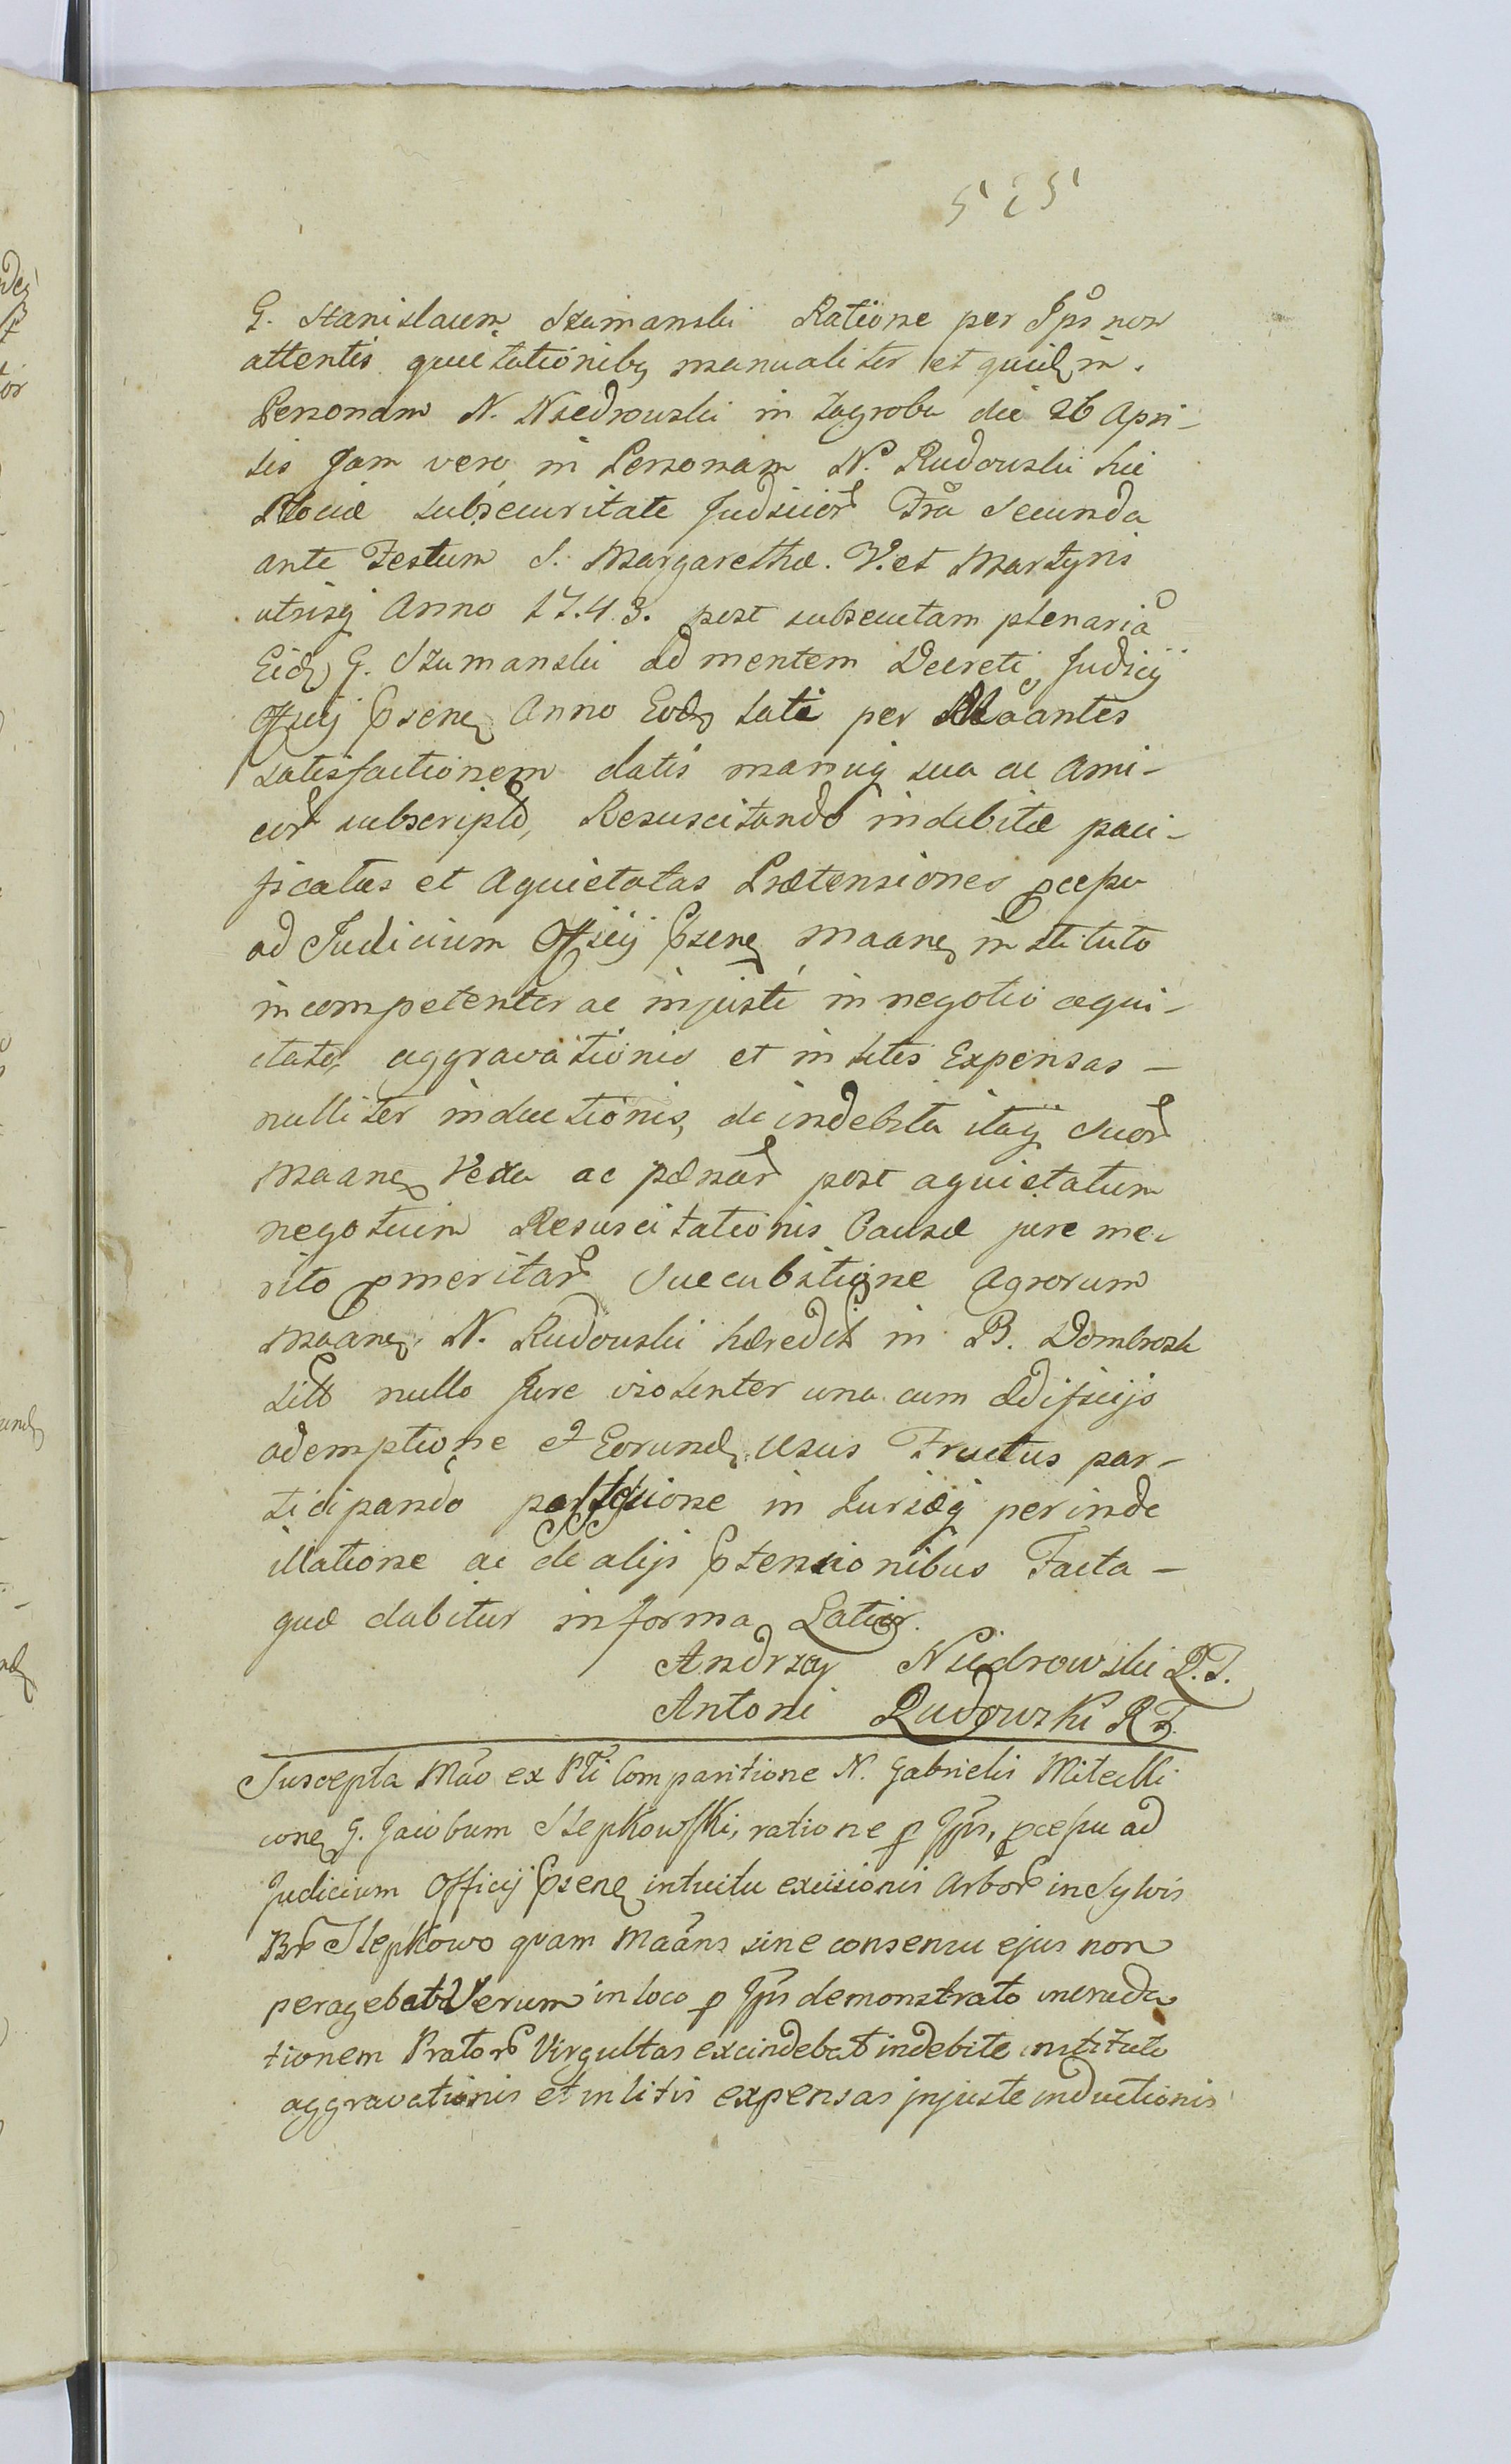 525
G. Stanislaum Szumanski Ratione per Ips non
attentis quietationibq manualiter et quidē in
Personam N. Niedrowski in Zagroba die 26 Apri-
lis Jam vero in Personam N. Rudowski hic
Plociæ subsecuritate Judicior Fra Secunda
ante Festum S. Margarethæ. V. et Martyris
utrisq Anno 1743. post subsecutam plenariā
Eid G. Szumanski ad mentem Decreti Judicij
Officij Psenē Anno Eod lati per Māantes
satisfactionem datis manuq sua ac Ami-
cor subscript, Resuscitando indebitæ paci-
ficatas et Aquietatas Prætensiones pcepsu
ad Judicium Officij Psenē Maanē instituto
incompetenter ac injuste in negotio aqui-
etato, aggravationis et in litis Expensas -
nulliter inductionis, de indebita itaq Suor
Maanē Vexa ac pænar post aquietatum
negotium Resuscitationis Causæ jure me-
rito pmeritar Succubitione Agrorum
Maanē. N. Rudowski hæredit in B. Dombrosk
sitt nullo Jure violenter una cum ædificijs
ademptione et Eorund Usus Fructus par-
ticipando in Lucsæq perinde
illatione ac de alijs Ptensionibus Facta -
quæ dabitur in forma Latior.
Andrzey Niedrowski P.T.
Antoni Rudowski RT
Suscepta Mão ex Pti Comparitione N. Gabrielis Mitecki
conē G. Jacobum Slepkowski, ratione p Ipm, pcepsu ad
Judicium Officij Psenē intuitu excisionis Arbor in Sylvis
Br Slepkowo quam Maans sine consensu ejus non
peragebat Verum in loco p Ipm demonstrato
tionem Prator Virgultas excindebat indebite instituto
aggravationis et in litis expensas injuste inductionis